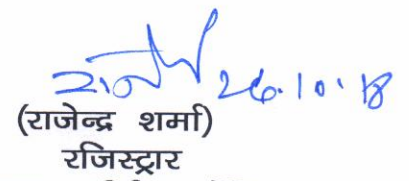 26.10.18
(राजेन्द्र शर्मा)
रजिस्ट्रार